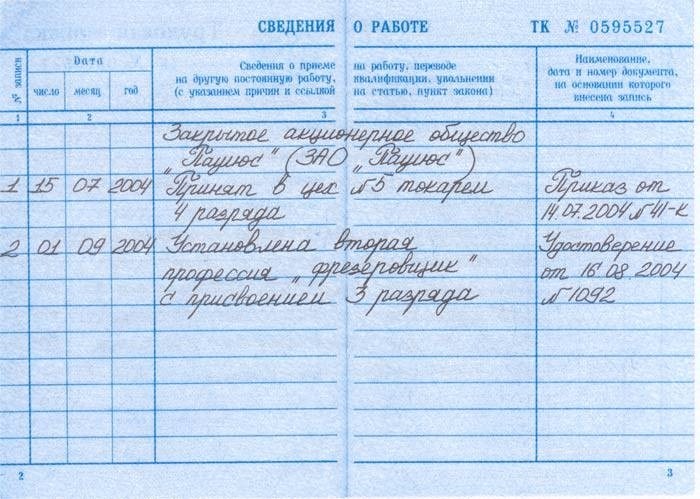 СВЕДЕНИЯ О РАБОТЕ ТК № 0595527
№ записи
Дата
число месяц год
Сведения о приеме на работу, переводе
на другую постоянную работу, квалификации, увольнении
(с указанием причин и ссылкой на статью, пункт закона)
Наименование,
дата и номер документа,
на основании которого
внесена запись
1 2 3 4
Закрытое акционерное общество
(ЗАО
1 15 07 2004 Принят в цех №5 токарем Приказ от
4 разряда 14.07.2004 №41-к
2 01 09 2004 Установлена вторая Удостоверение
профессия „фрезеровщик" от 16.08.2004
с присвоением 3 разряда №1092
2 3